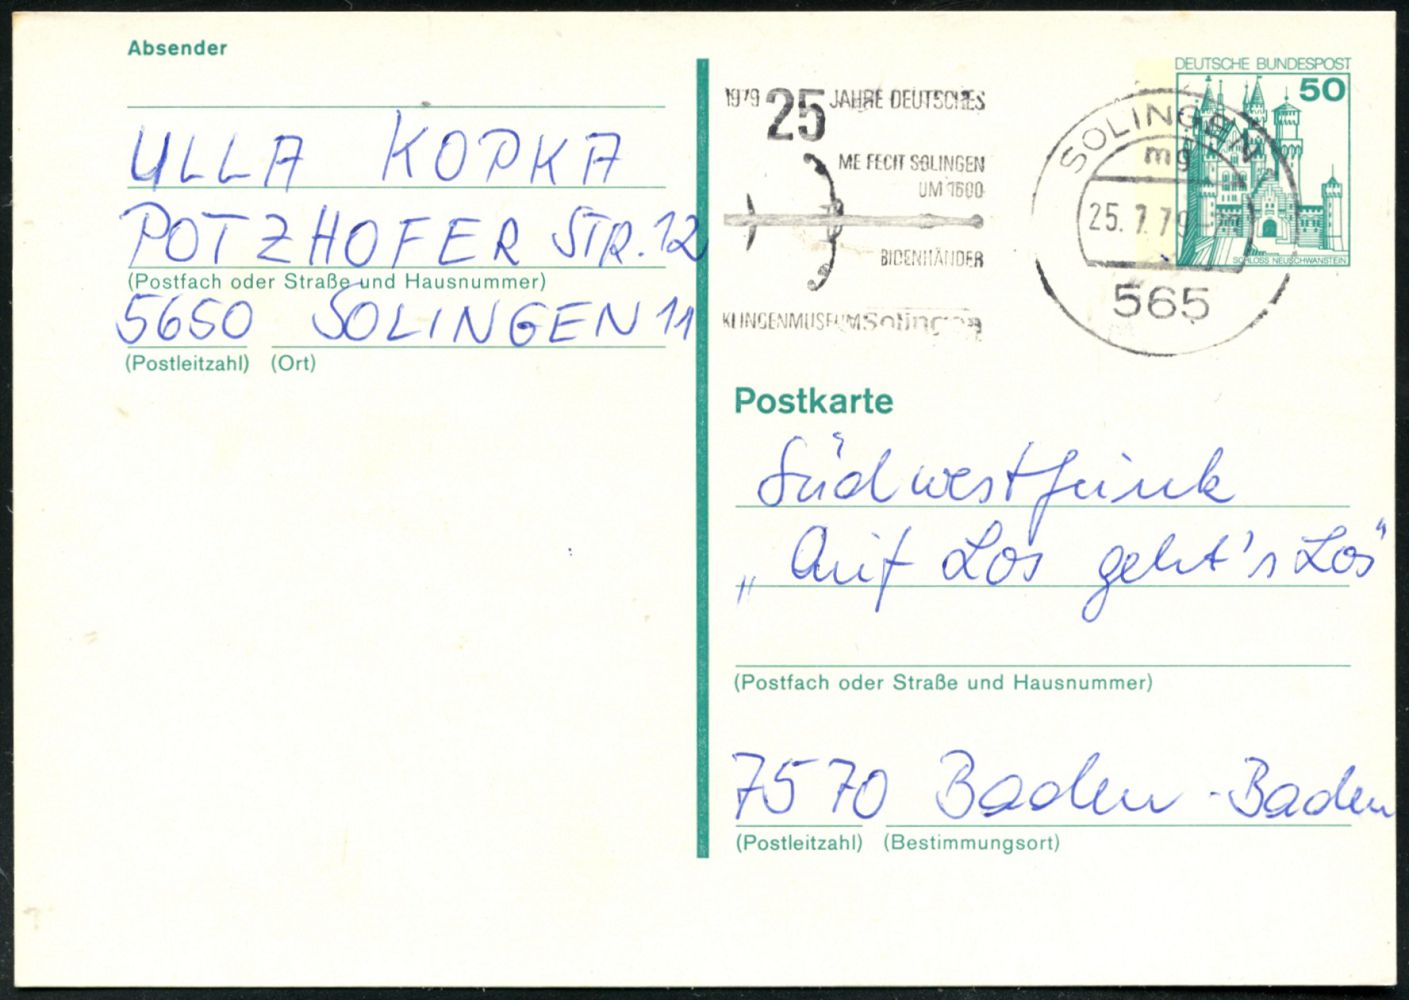 Absender
ULLA KOPKA
POTZHOFER STR. 12
(Postfach oder Straße und Hausnummer)
5650 SOLINGEN 11
(Postleitzahl) (Ort)
1979 25 JAHRE DEUTSCHES
ME FECIT SOLINGEN
UM 1600
BIDENHÄNDER
KLINGENMUSEUM Solingen
SOLINGEN 1
mg
25.7.79
565
DEUTSCHE BUNDESPOST
50
SCHLOSS NEUSCHWANSTEIN
Postkarte
Südwestfunk
„Auf Los geht's Los"
(Postfach oder Straße und Hausnummer)
7570 Baden-Baden
(Postleitzahl) (Bestimmungsort)